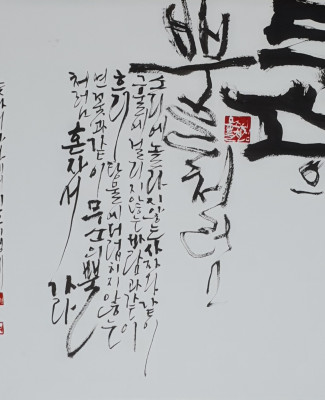 무소의
뿔처럼
소리에 놀라지 않는 사자와 같이
그물에 걸리지 않는 바람과 같이
흙탕물에 더럽히지 않는
연꽃과 같이 무소의 뿔
처럼 혼자서
가라